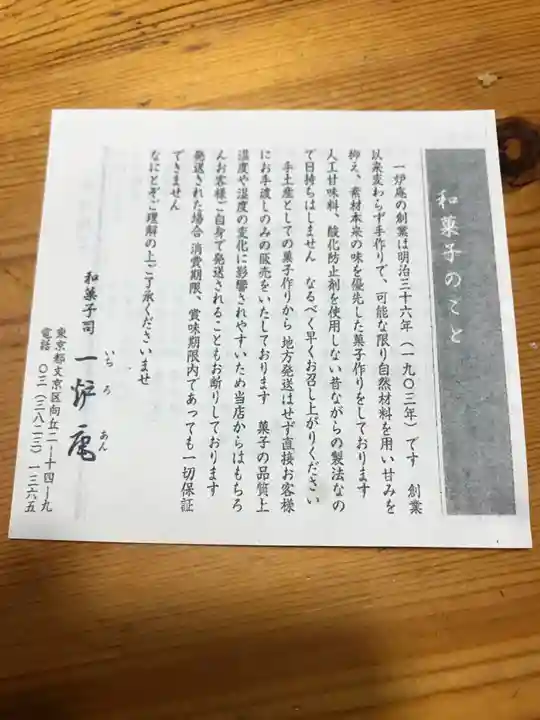 和菓子のこと
一炉庵の創業は明治三十六年（一九〇三年）です　創業
以来変わらず手作りで、可能な限り自然材料を用い甘みを
抑え、素材本来の味を優先した菓子作りをしております
人工甘味料、酸化防止剤を使用しない昔ながらの製法なの
で日持ちはしません　なるべく早くお召し上がりください
手土産としての菓子作りから 地方発送はせず直接お客様
にお手渡しのみの販売をいたしております　菓子の品質上
温度や湿度の変化に影響されやすいため当店からはもちろ
んお客様ご自身で発送されることもお断りしております
発送された場合 消費期限、賞味期限内であっても一切保証
できません
なにとぞご理解の上ご了承くださいませ
和菓子司 一炉庵
いち ろ あん
東京都文京区向丘二ー十四ー九
電話 〇三（三八二三）一三六五